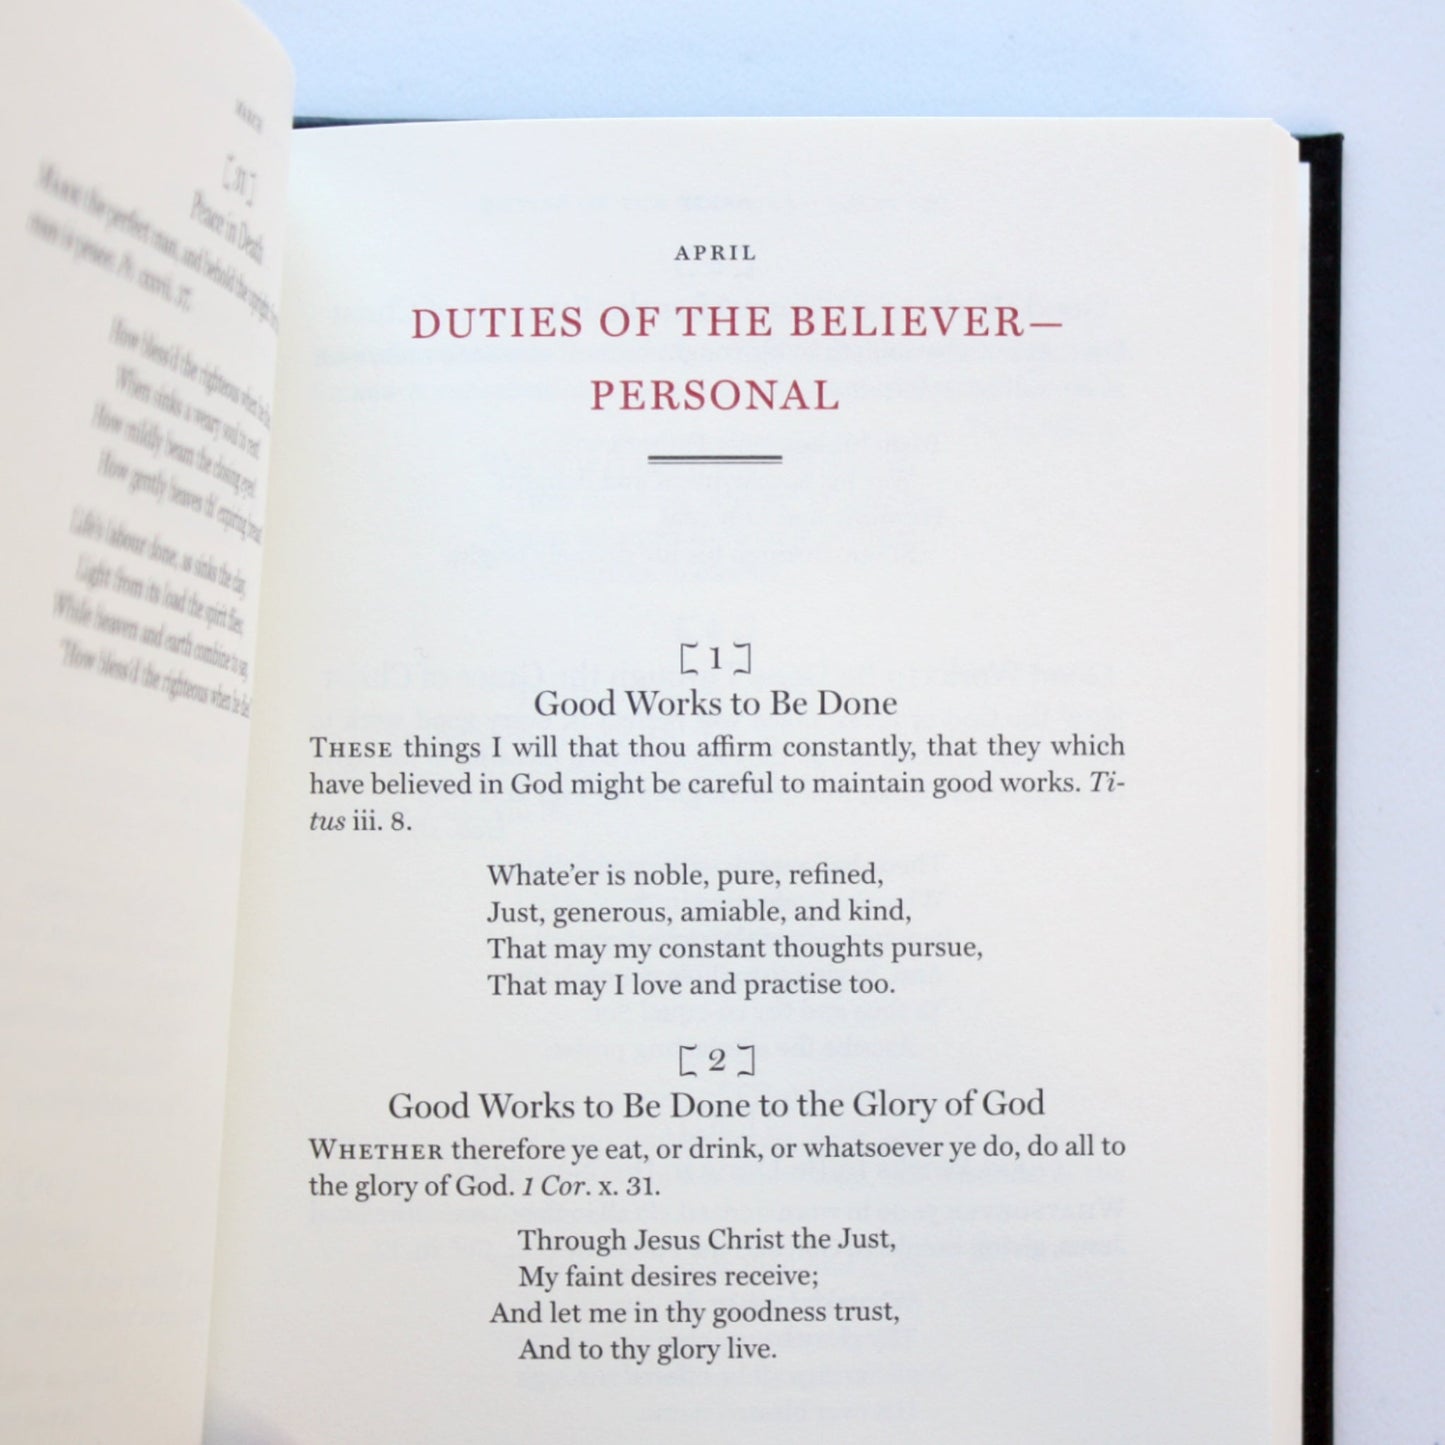 MARCH
[31]
Peace in Death
MARK the perfect man, and behold the upright
man is peace. Ps. xxxvii. 37.
How bless'd the righteous when he
When sinks a weary soul to rest
How mildly beam the closing eyes
How gently heaves th' expiring breast
Life's labour done, as sinks the day,
Light from its load the spirit flies,
While heaven and earth combine to say,
"How bless'd the righteous when he dies
APRIL
DUTIES OF THE BELIEVER—
PERSONAL
[1]
Good Works to Be Done
THESE things I will that thou affirm constantly, that they which
have believed in God might be careful to maintain good works. Ti-
tus iii. 8.
Whate'er is noble, pure, refined,
Just, generous, amiable, and kind,
That may my constant thoughts pursue,
That may I love and practise too.
[2]
Good Works to Be Done to the Glory of God
WHETHER therefore ye eat, or drink, or whatsoever ye do, do all to
the glory of God. 1 Cor. x. 31.
Through Jesus Christ the Just,
My faint desires receive;
And let me in thy goodness trust,
And to thy glory live.